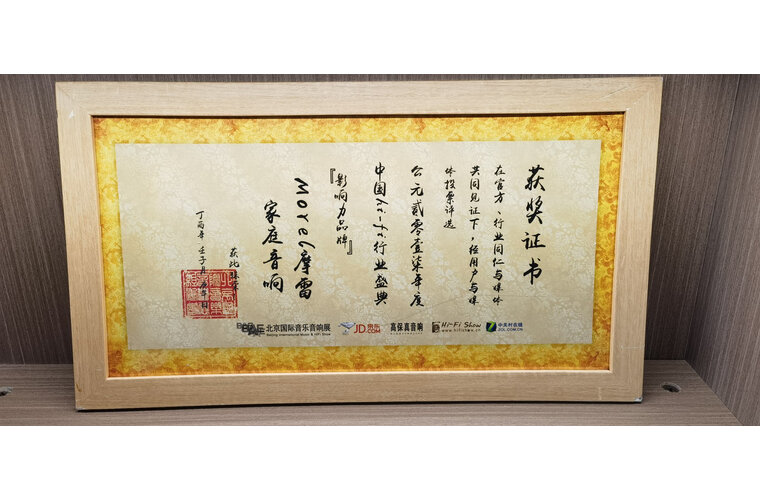 获奖证书
在官方、行业同仁与媒体
共同见证下，经用户与媒
体投票评选
公元贰零壹柒年度
中国hi-fi行业盛典
『影响力品牌』
Morel摩雷
家庭音响
获此殊荣
丁酉年 壬子月
北京国际音乐音响展
Beijing International Music & HiFi Show
JD 京东
高保真音响
Hi-Fi Show
www.hifishow.cn
中关村在线
ZOL.COM.CN